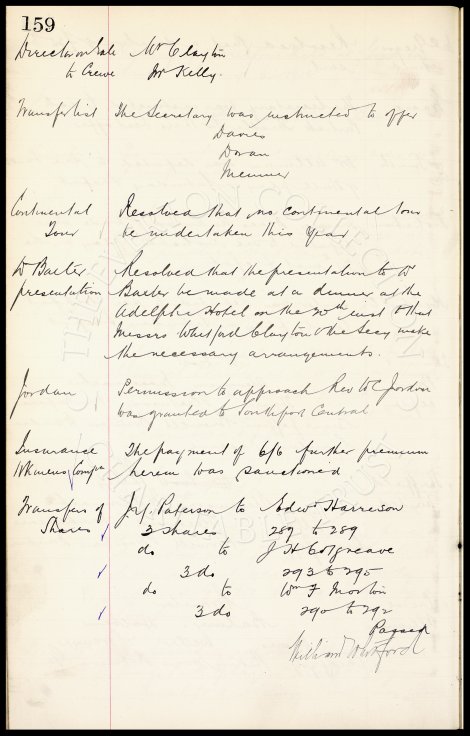 159
Director on Gate Mr Clayton
to Crewe Dr Kelly.
Transfer list The Secretary was instructed to offer
Davies
Doran
Meunier
Continental Resolved that no continental tour
Tour be undertaken this year
Dr Baxter Resolved that the presentation to Dr
presentation Baxter be made at a dinner at the
Adelphi Hotel on the 20th inst & that
Messrs Whitford Clayton & the Secy make
the necessary arrangements.
Jordan Permission to approach Rev W C Jordan
was granted to Southport Central
Insurance The payment of 6/6 further premium
Wkmens Compn herein was sanctioned
Transfers of J. Y. Paterson to Edwd Harrison
Shares 3 shares 287 to 289
do to J H Colgreave
3 do 293 to 295
do to Wm F Morton
3 do 290 to 292
Passed
William Whitford